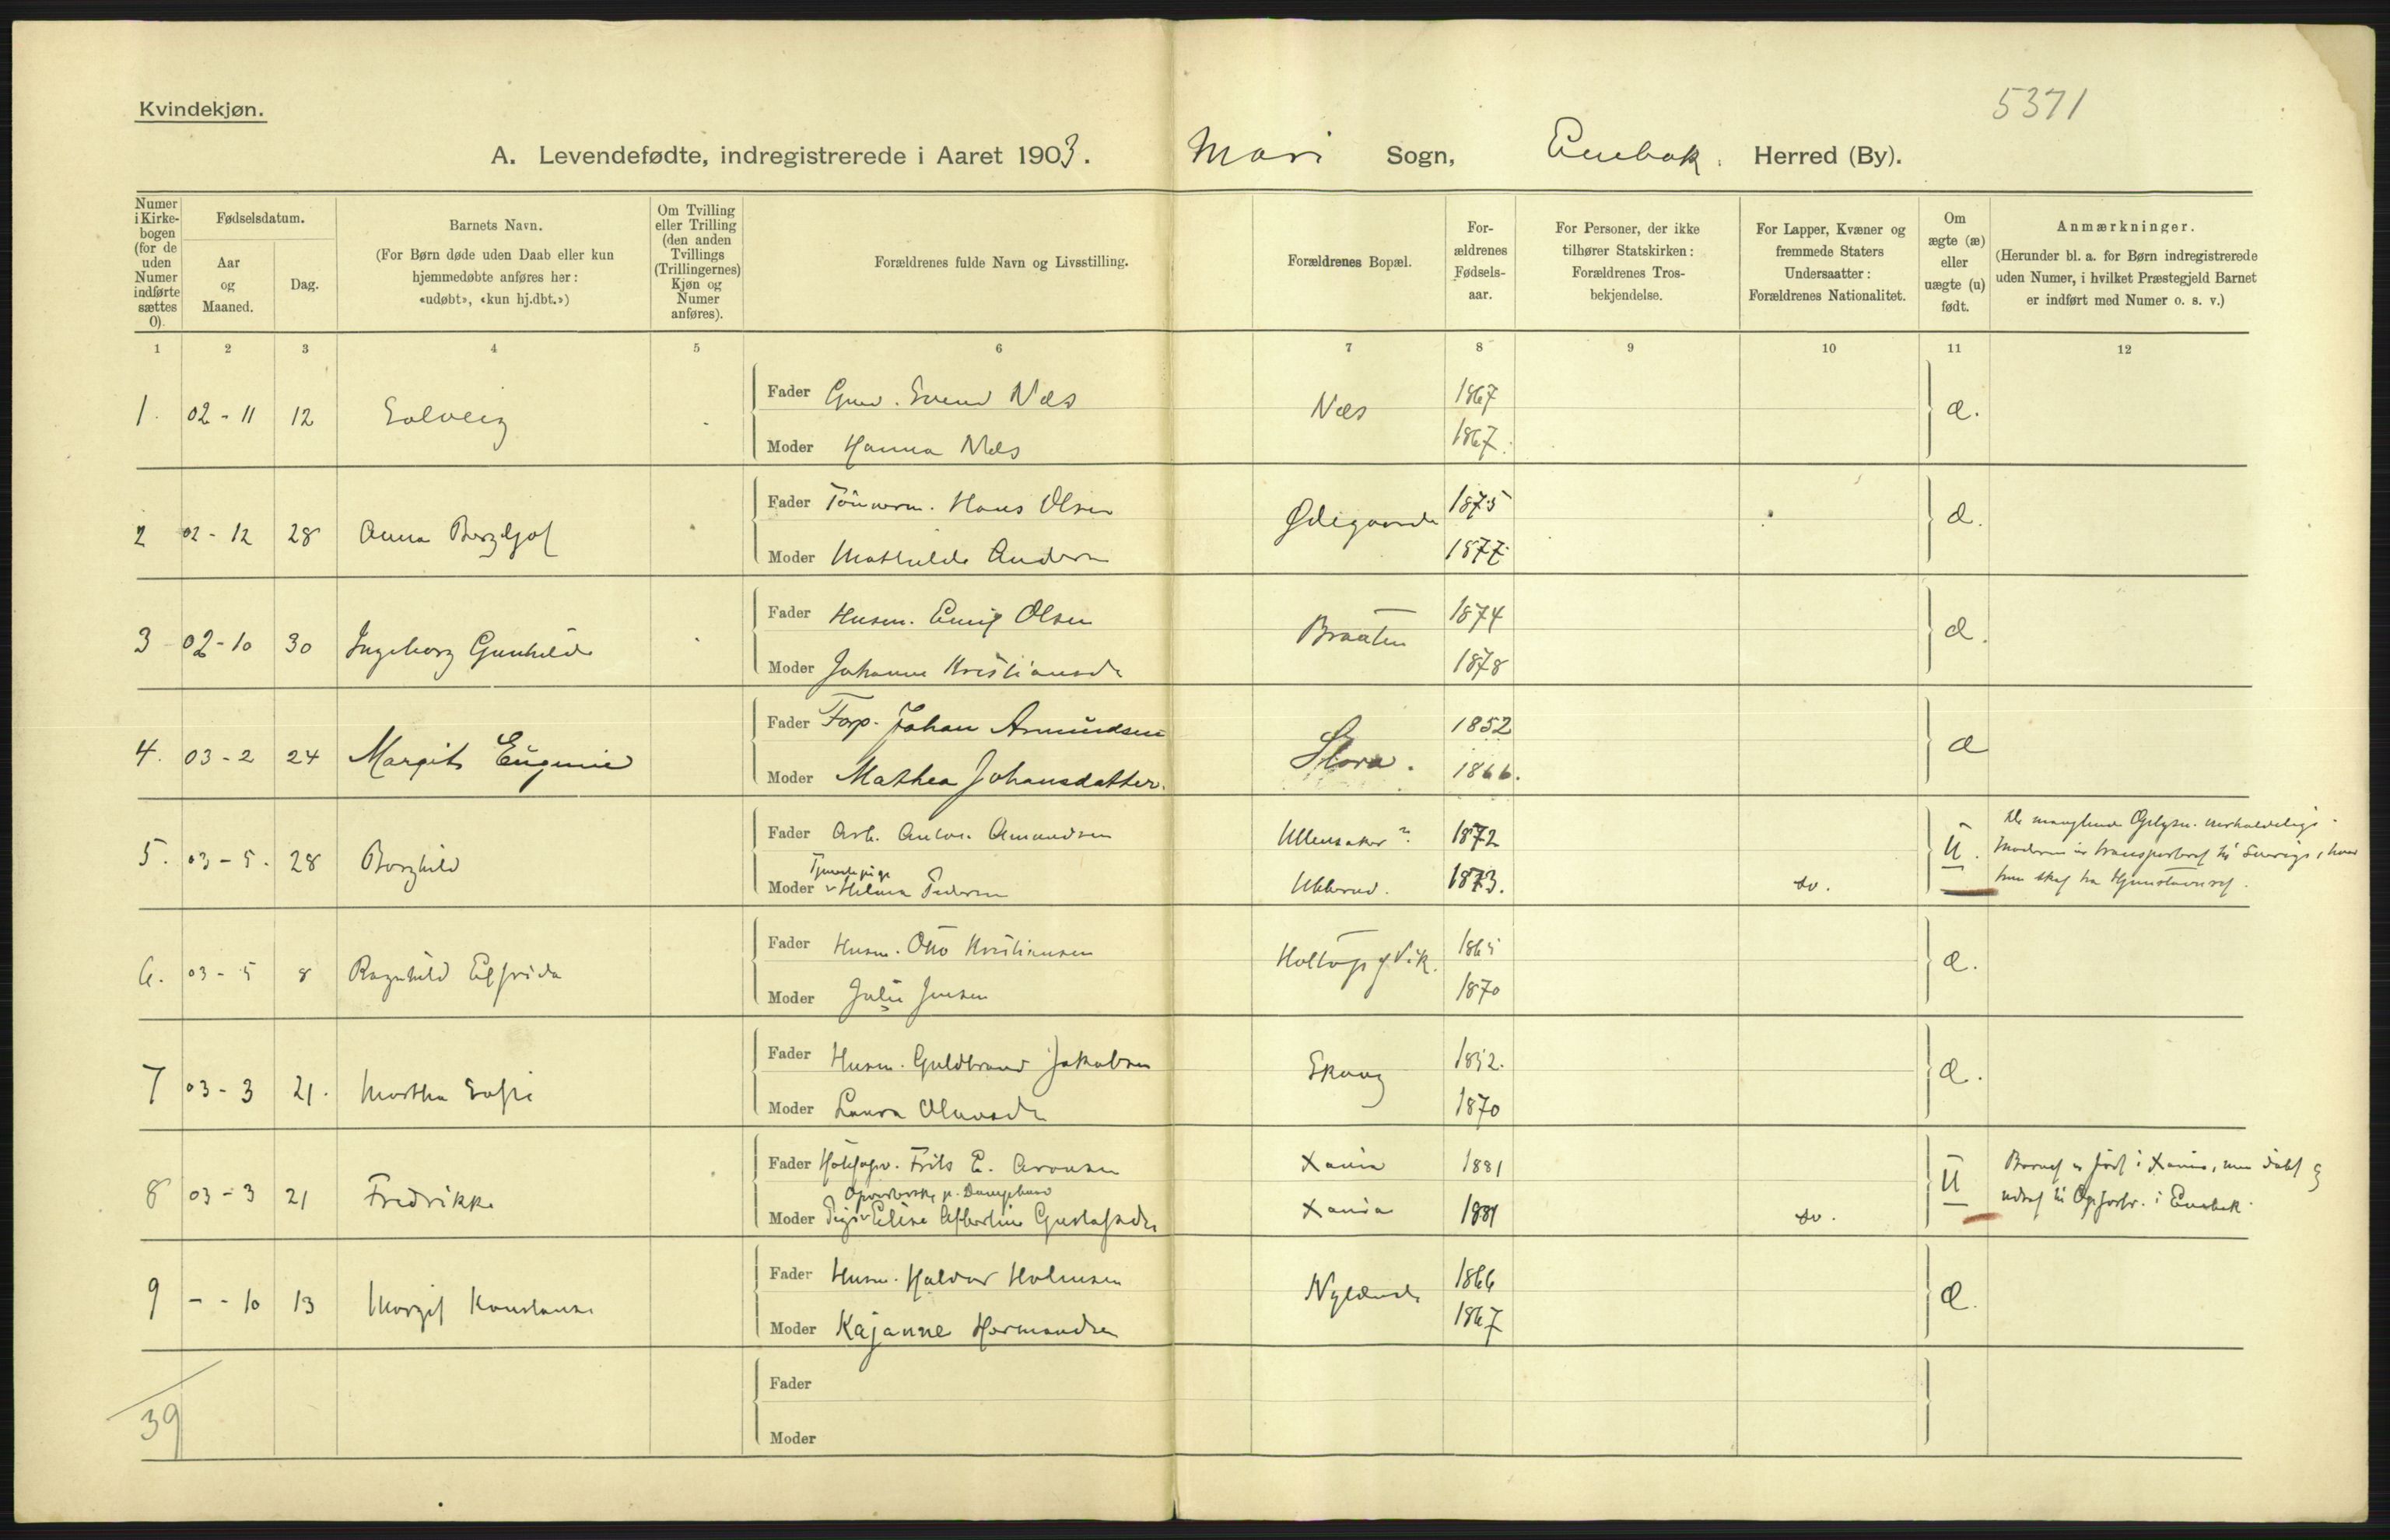 Kvindekjøn.
5371
A. Levendefødte, indregistrerede i Aaret 1903. Mari Sogn, Enebak. Herred (By).
Numer i Kirkebogen (for de uden Numer indførte sættes 0).
Fødselsdatum.
Aar og Maaned.
Dag.
Barnets Navn.
(For Børn døde uden Daab eller kun hjemmedøbte anføres her: «udøbt», «kun hj.dbt.»)
Om Tvilling eller Trilling (den anden Tvillings (Trillingernes) Kjøn og Numer anføres).
Forældrenes fulde Navn og Livsstilling.
Forældrenes Bopæl.
Forældrenes Fødselsaar.
For Personer, der ikke tilhører Statskirken: Forældrenes Trosbekjendelse.
For Lapper, Kvæner og fremmede Staters Undersaatter: Forældrenes Nationalitet.
Om ægte (æ) eller uægte (u) født.
Anmærkninger.
(Herunder bl. a. for Børn indregistrerede uden Numer, i hvilket Præstegjeld Barnet er indført med Numer o. s. v.)
1 2 3 4 5 6 7 8 9 10 11 12
1. 02-11 12 Solveig
Fader Svend Næs Næs 1867 æ.
Moder Hanna Næs 1867.
2 02-12 28 Anna
Fader Tømmerm. Hans Olsen Ødegaarde 1875 æ.
Moder Mathilde 1877
3 02-10 30 Ingeborg Gunhilde
Fader Husm. Olsen Braaten 1874 æ.
Moder Johanne Kristiansd. 1878
4. 03-2 24 Margit Eugenie
Fader Johan Amundsen 1852 æ
Moder Mathea Johansdatter. 1866.
5. 03-5. 28 Borghild
Fader Arb. Anton Amundsen Ullensaker? 1872 U.
Moder Tjenestepige Helma Pedersen 1873. sv.
De manglende Oplysn. uerholdelige.
Moderen er transporteret til Sverige, hvor
hun skal ha Hjemstavnsret.
6. 03-5 8 Ragnhild Elfrida
Fader Husm. Otto Kristiansen 1865 æ.
Moder Julie Jensen 1870
7 03-3 21. Martha Sofie
Fader Husm. Guldbrand Jakobsen Skaug 1852. æ.
Moder Laura Olausd. 1870
8 03-3 21 Fredrikke
Fader Frits E. Aronsen Xania 1881 U
Moder Pige Elise Albertine Gustafsd. Xania 1881 sv.
Barnet er født i Xania, men døbt og
udsat til Opfostr. i Enebak.
9 - - 10 13 Margit Konstanse
Fader Husm. Halvor Holmsen Nylænde 1866 æ.
Moder Kajanne Hermandsen 1867
Fader
39
Moder